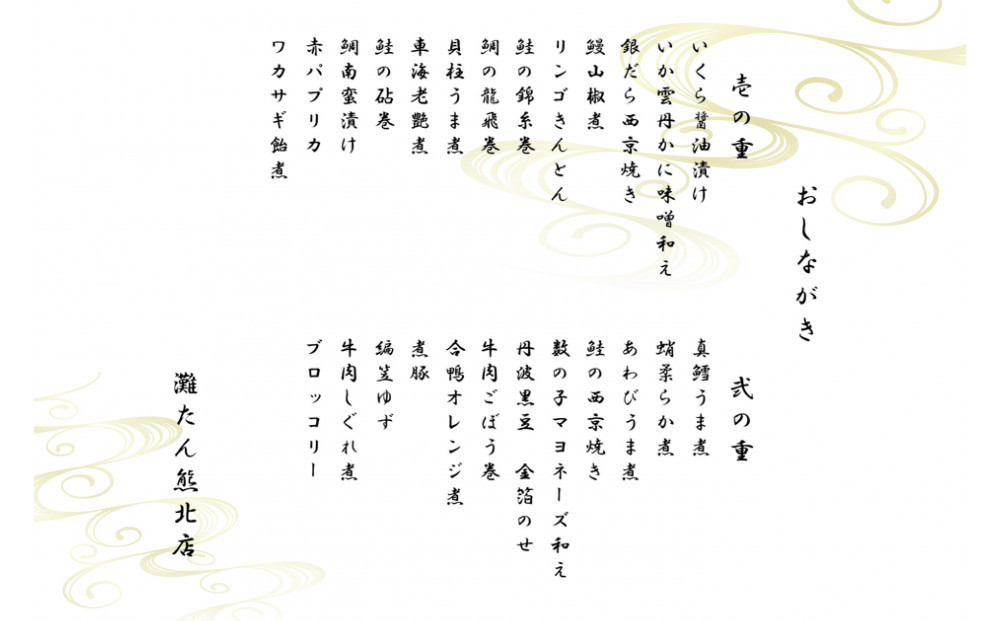 おしながき
壱の重
いくら醤油漬け
いか雲丹かに味噌和え
銀だら西京焼き
鰻山椒煮
リンゴきんとん
鮭の錦糸巻
鯛の龍飛巻
貝柱うま煮
車海老艶煮
鮭の砧巻
鯛南蛮漬け
赤パプリカ
ワカサギ飴煮
弐の重
真鱈うま煮
蛸柔らか煮
あわびうま煮
鮭の西京焼き
数の子マヨネーズ和え
丹波黒豆　金箔のせ
牛肉ごぼう巻
合鴨オレンジ煮
煮豚
編笠ゆず
牛肉しぐれ煮
ブロッコリー
灘たん熊北店